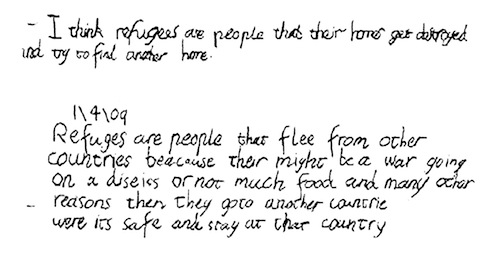 - I think refugees are people that their homes get destroyed
and try to find another home.
1\4\09
Refuges are people that flee from other
countries beacause their might be a war going
on a diseies or not much food and many other
- reasons then they goto another countrie
were its safe and stay at that country